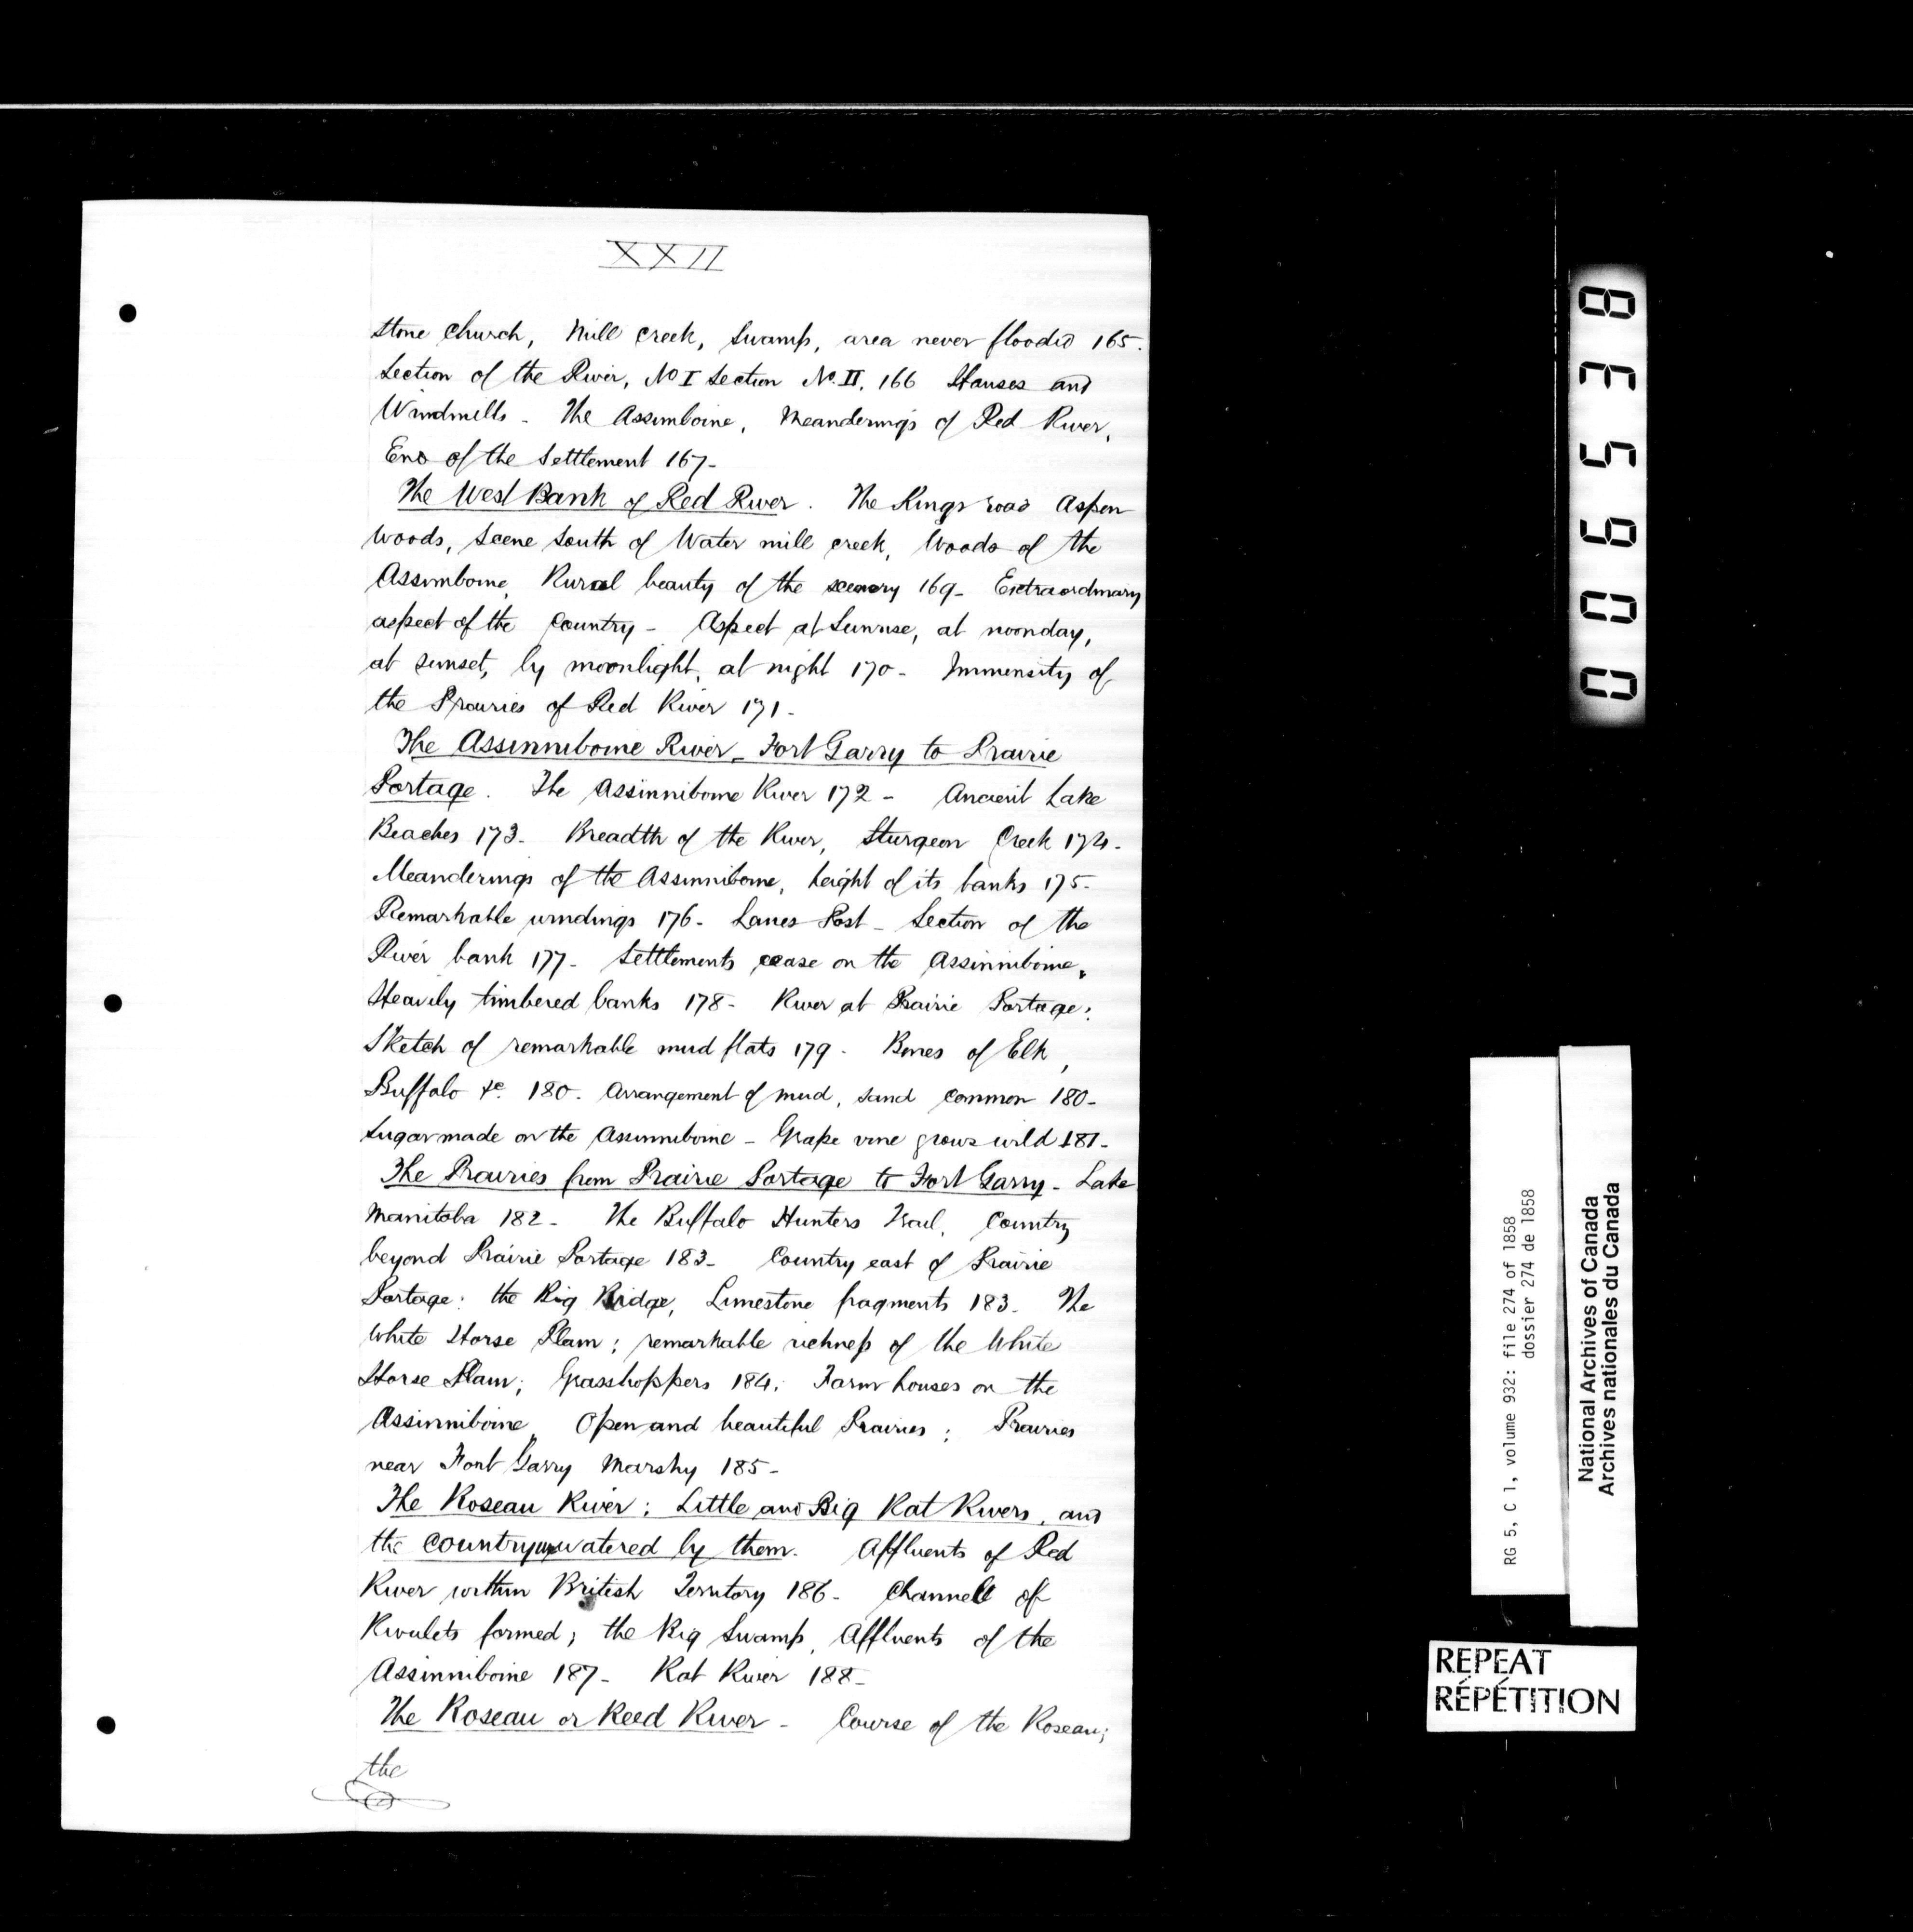 XXII
Stone church, Mill creek, Swamp, area never flooded 165.
Section of the River, No I Section No. II. 166 Houses and
Windmills - The Assiniboine, Meanderings of Red River,
End of the Settlement 167-
The West Bank of Red River. The Kings road Aspen
woods, Scene South of Water mill creek, Woods of the
Assiniboine, Rural beauty of the scenery 169- Extraordinary
aspect of the Country - Aspect at Sunrise, at noonday,
at sunset, by moonlight, at night 170- Immensity of
the Prairies of Red River 171-
The Assinniboine River - Fort Garry to Prairie
Portage. The Assinniboine River 172 - Ancient Lake
Beaches 173- Breadth of the River, Sturgeon Creek 174-
Meanderings of the Assinniboine, height of its banks 175-
Remarkable windings 176- Lanes Post - Section of the
River bank 177- Settlements cease on the Assinniboine,
Heavily timbered banks 178- River at Prairie Portage;
Sketch of remarkable mud flats 179- Bones of Elk,
Buffalo &c. 180. Arrangement of mud, sand common 180-
Sugar made on the Assinniboine - Grape vine grows wild 181-
The Prairies from Prairie Portage to Fort Garry - Lake
Manitoba 182- The Buffalo Hunters Trail, Country
beyond Prairie Portage 183- Country east of Prairie
Portage; the Big Ridge, Limestone fragments 183- The
White Horse Plain; remarkable richness of the White
Horse Plain; Grasshoppers 184; Farm houses on the
Assinniboine, Open and beautiful Prairies; Prairies
near Fort Garry Marshy 185-
The Roseau River; Little and Big Rat Rivers, and
the country watered by them. Affluents of Red
River within British Territory 186- Channell of
Rivulets formed; the Big Swamp, Affluents of the
Assinniboine 187- Rat River 188-
The Roseau or Reed River - Course of the Roseau;
the
006538
RG 5, C 1, volume 932: file 274 of 1858
dossier 274 de 1858
National Archives of Canada
Archives nationales du Canada
REPEAT
RÉPÉTITION